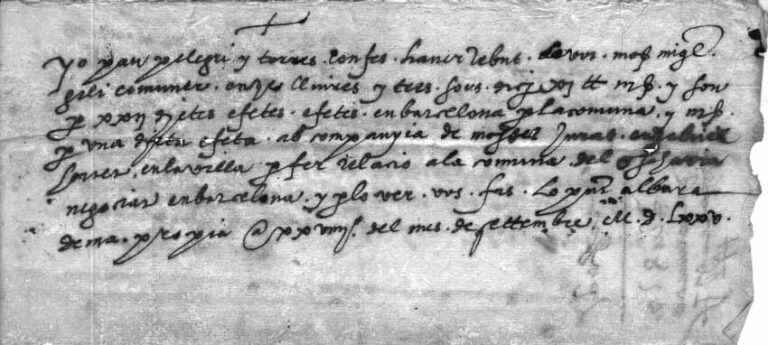 yo pau pelegri y torres confes haver rebut de vos mos migl
gili comuner onze lliures y tres sous dich xi ll iii s y son
p xxii dietes efetes efetes en barcelona p la comuna y iii s
p una dieta efeta ab companyia de mosser Juras en gabriel
ferrer en la villa p fer relacio a la comuna del
negociar en barcelona y p lo ver vos fas lo pnt albara
de ma propia a xxviiii del mes de settembre M D Lxxv